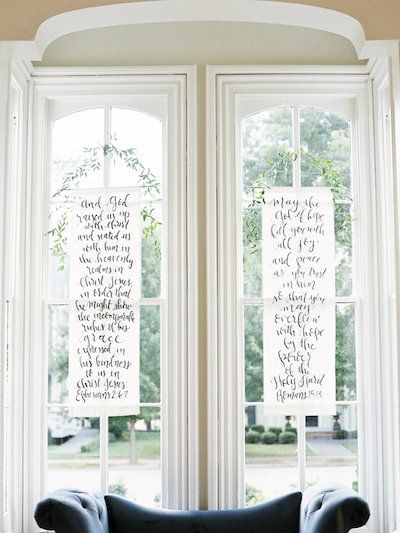 And God
raised us up
with Christ
and seated us
with him in
the heavenly
realms in
Christ Jesus,
in order that
he might show
the incomparable
riches of his
grace
expressed in
his kindness
to us in
Christ Jesus.
Ephesians 2:6-7
May the
God of hope
fill you with
all joy
and peace
as you trust
in him
so that you
may
overflow
with hope
by the
power
of the
Holy Spirit
Romans 15:13